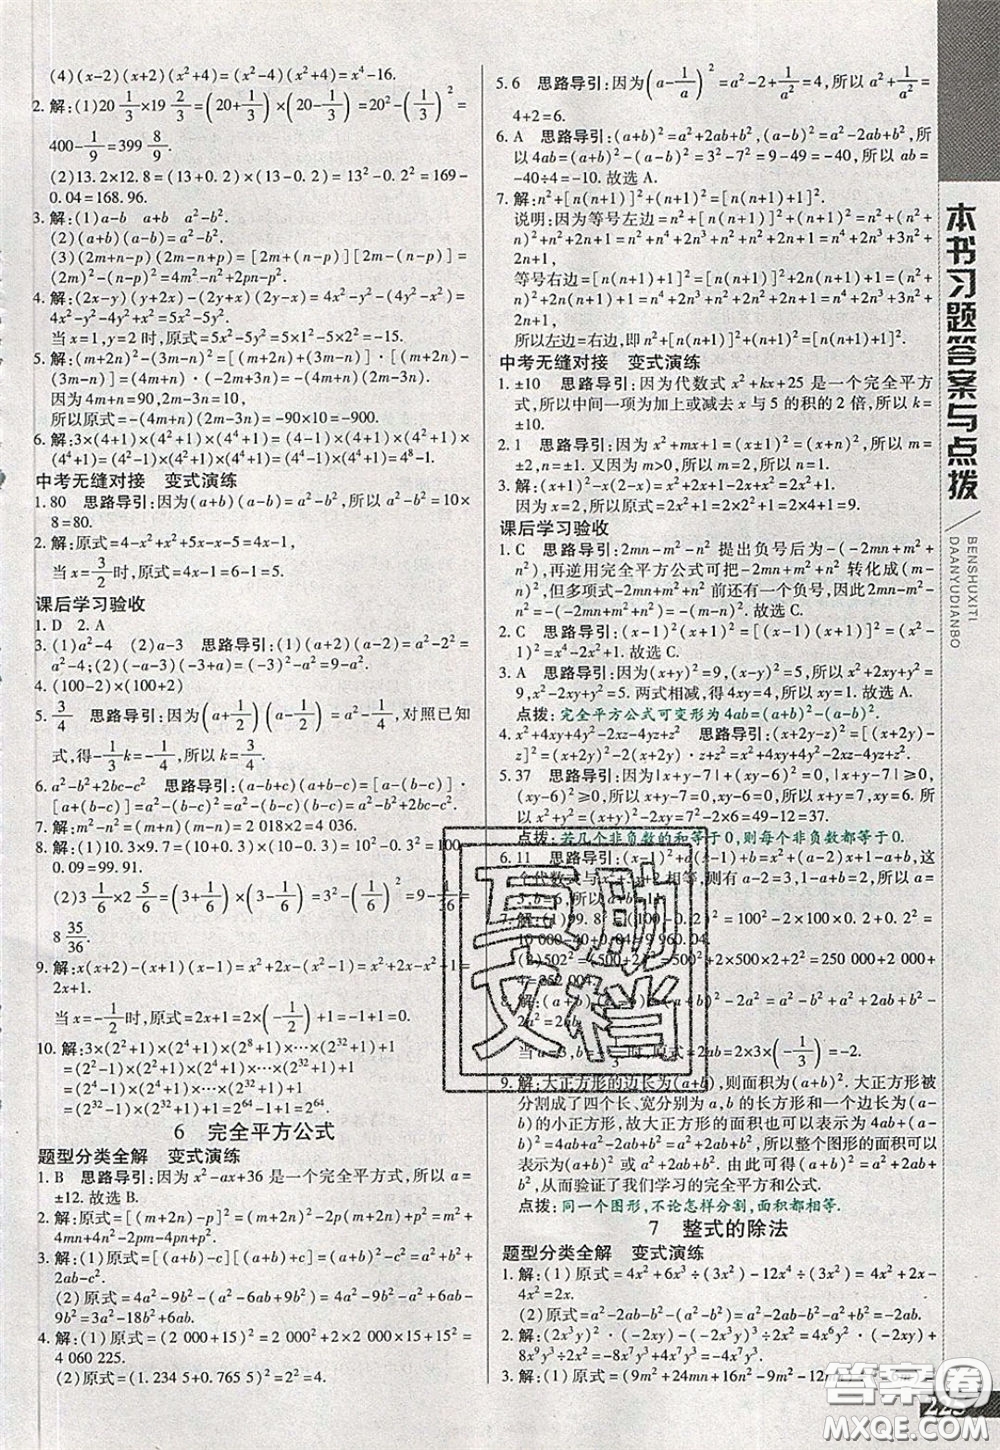 (4)(x-2)(x+2)(x²+4)=(x²-4)(x²+4)=x⁴-16.
2. 解:(1)20 1/3×19 2/3=(20+1/3)×(20-1/3)=20²-(1/3)²=
400-1/9=399 8/9.
(2)13.2×12.8=(13+0.2)×(13-0.2)=13²-0.2²=169-
0.04=168.96.
3. 解:(1)a-b a+b a²-b².
(2)(a+b)(a-b)=a²-b².
(3)(2m+n-p)(2m-n+p)=[2m+(n-p)][2m-(n-p)]=
(2m)²-(n-p)²=4m²-n²+2pn-p².
4. 解:(2x-y)(y+2x)-(2y+x)(2y-x)=4x²-y²-(4y²-x²)=
4x²-y²-4y²+x²=5x²-5y².
当x=1,y=2时,原式=5x²-5y²=5×1²-5×2²=-15.
5. 解:(m+2n)²-(3m-n)²=[(m+2n)+(3m-n)]·
[(m+2n)-(3m-n)]=-(4m+n)(2m-3n).
因为4m+n=90,2m-3n=10,
所以原式=-(4m+n)(2m-3n)=-90×10=-900.
6. 解:3×(4+1)×(4²+1)×(4⁴+1)=(4-1)×(4+1)×(4²+1)×
(4⁴+1)=(4²-1)×(4²+1)×(4⁴+1)=(4⁴-1)×(4⁴+1)=4⁸-1.
中考无缝对接 变式演练
1. 80 思路导引:因为(a+b)(a-b)=a²-b²,所以a²-b²=10×
8=80.
2. 解:原式=4-x²+x²+5x-5=5x-1.
当x=3/2时,原式=4x-1=6-1=5.
课后学习验收
1. D 2. A
3. (1)a²-4 (2)a-3 思路导引:(1)(a+2)(a-2)=a²-
2²=a²-4;(2)(-a-3)(-3+a)=(-3)²-a²=9-a².
4. (100-2)×(100+2)
5. 3/4 思路导引:因为(a+1/2)(a-1/2)=a²-1/4,对照已知
式,得-1/3k=-1/4,所以k=3/4.
6. a²-b²+2bc-c² 思路导引:(a+b-c)(a-b+c)=[a-(b-c)]·
[a+(b-c)]=a²-(b-c)²=a²-b²+2bc-c².
7. 解:m²-n²=(m+n)(m-n)=2 018×2=4 036.
8. 解:(1)10.3×9.7=(10+0.3)×(10-0.3)=10²-0.3²=100-
0.09=99.91.
(2)3 1/6×2 5/6=(3+1/6)×(3-1/6)=3²-(1/6)²=9-1/36=
8 35/36.
9. 解:x(x+2)-(x+1)(x-1)=x²+2x-(x²-1)=x²+2x-x²+1=
2x+1.
当x=-1/2时,原式=2x+1=2×(-1/2)+1=0.
10. 解:3×(2²+1)×(2⁴+1)×…×(2³²+1)+1
=(2²-1)×(2²+1)×(2⁴+1)×…×(2³²+1)+1
=(2⁴-1)×(2⁴+1)×…×(2³²+1)+1=
(2³²-1)×(2³²+1)+1=2⁶⁴-1+1=2⁶⁴.
6 完全平方公式
题型分类全解 变式演练
1. B 思路导引:因为x²-ax+36是一个完全平方式,所以a=
±12.故选B.
2. 解:原式=[(m+2n)-p]²=(m+2n)²-2p(m+2n)+p²=m²+
4mn+4n²-2pm-4pn+p².
3. 解:(1)原式=[(a+b)-c][(a+b)+c]=(a+b)²-c²=a²+
2ab+b²-c².
(2)原式=4a²-9b²-(a²-6ab+9b²)=4a²-9b²-a²+6ab-
9b²=3a²-18b²+6ab.
4. 解:(1)原式=(2 000+15)²=2 000²+2×2 000×15+15²=
4 060 225.
(2)原式=(1.234 5+0.765 5)²=2²=4.
5. 6 思路导引:因为(a-1/a)²=a²-2+1/a²=4,所以a²+1/a²=
4+2=6.
6. A 思路导引:(a+b)²=a²+2ab+b²,(a-b)²=a²-2ab+b²,所
以4ab=(a+b)²-(a-b)²=3²-7²=9-49=-40,所以ab=
-40÷4=-10.故选A.
7. 解:n²+[n(n+1)]²+(n+1)²=[n(n+1)+1]².
说明:因为等号左边=n²+[n(n+1)]²+(n+1)²=n²+(n²+
n)²+n²+2n+1=n²+n⁴+2n³+n²+n²+2n+1=n⁴+2n³+3n²
+2n+1,
等号右边=[n(n+1)+1]²=[n(n+1)]²+2n(n+1)+1=(n²+
n)²+2n²+2n+1=n⁴+2n³+n²+2n²+2n+1=n⁴+2n³+3n²+
2n+1,
所以左边=右边,即n²+[n(n+1)]²+(n+1)²=[n(n+1)+1]².
中考无缝对接 变式演练
1. ±10 思路导引:因为代数式x²+kx+25是一个完全平方
式,所以中间一项为加上或减去x与5的积的2倍,所以k=
±10.
2. 1 思路导引:因为x²+mx+1=(x±1)²=(x±1)²,所以m=
±1.又因为m>0,所以m=1.
3. 解:(x+1)²-2x(x+1)=x²+2x+1-2x²-2x=-x²+1.
因为x=2,所以原式=-x²+1=-2²+1=-3.
课后学习验收
1. C 思路导引:2mn-m²-n²提出负号后为-(-2mn+m²+
n²),再逆用完全平方公式可把-2mn+m²+n²转化成(m-
n)²,因为-2mn+m²+n²前还有一个负号,所以2mn-m²-
n²=-(-2mn+m²+n²)=-(m-n)².故选C.
2. C 思路导引:(x-1)²(x+1)²=[(x-1)(x+1)]²=(x²-1)²
=x⁴-2x²+1.故选C.
3. A 思路导引:因为(x+y)²=9,所以x²+2xy+y²=9,因为(x-
y)²=5,所以x²-2xy+y²=5.两式相减,得4xy=4,所以xy=1.
故选A.
点拨:完全平方公式可变形为4ab=(a+b)²-(a-b)².
4. x²+4xy+4y²-2xz-4yz+z² 思路导引:(x+2y-z)²=[(x+
2y)-z]²=(x+2y)²-2(x+2y)·z+z²=x²+4xy+4y²-2xz-4yz+z².
5. 37 思路导引:因为|x+y-7|+(xy-6)²=0,|x+y-7|≥0,
(xy-6)²≥0,所以x+y-7=0,xy-6=0,即x+y=7,xy=6,所
以x²+y²=(x+y)²-2xy=7²-2×6=37.
点拨:若几个非负数的和等于0,则每个非负数都等于0.
7. 解:(1)99.8²=(100-0.2)²=100²-2×100×0.2+0.2²=
10 000-40+0.04=9 960.04.
(2)502²=(500+2)²=500²+2×500×2+2²=250 000+2 000+
4=252 004.
9. 解:大正方形的边长为(a+b),则面积为(a+b)².大正方形被
分割成了四个长、宽分别为a,b的长方形和一个边长为(a-
b)的小正方形,故大正方形的面积可以表示为(a-b)²+
4ab=a²-2ab+b²+4ab=a²+2ab+b²,所以整个图形的面积可以
表示为(a+b)²=a²+2ab+b².由此可得(a+b)²=a²+2ab+
b²,从而验证了我们学习的完全平方和公式.
点拨:同一个图形,不论怎样分割,面积都相等.
7 整式的除法
题型分类全解 变式演练
1. 解:(1)原式=4x²+6x³÷(3x²)-12x⁴÷(3x²)=4x²+2x-
4x²=2x.
(2)原式=a²-2ab-b²-(a²-b²)=a²-2ab-b²-a²+b²=-2ab.
2. 解:(2x³y)²·(-2xy)+(-2x³y)³÷2x²=4x⁶y²·(-2xy)+
8x⁹y³÷2x²=-8x⁷y³-4x⁷y³=-12x⁷y³.
本书习题答案与点拨
BENSHUXITI
DAANYUDIANBO
互助文档
答案圈
MXQE.COM